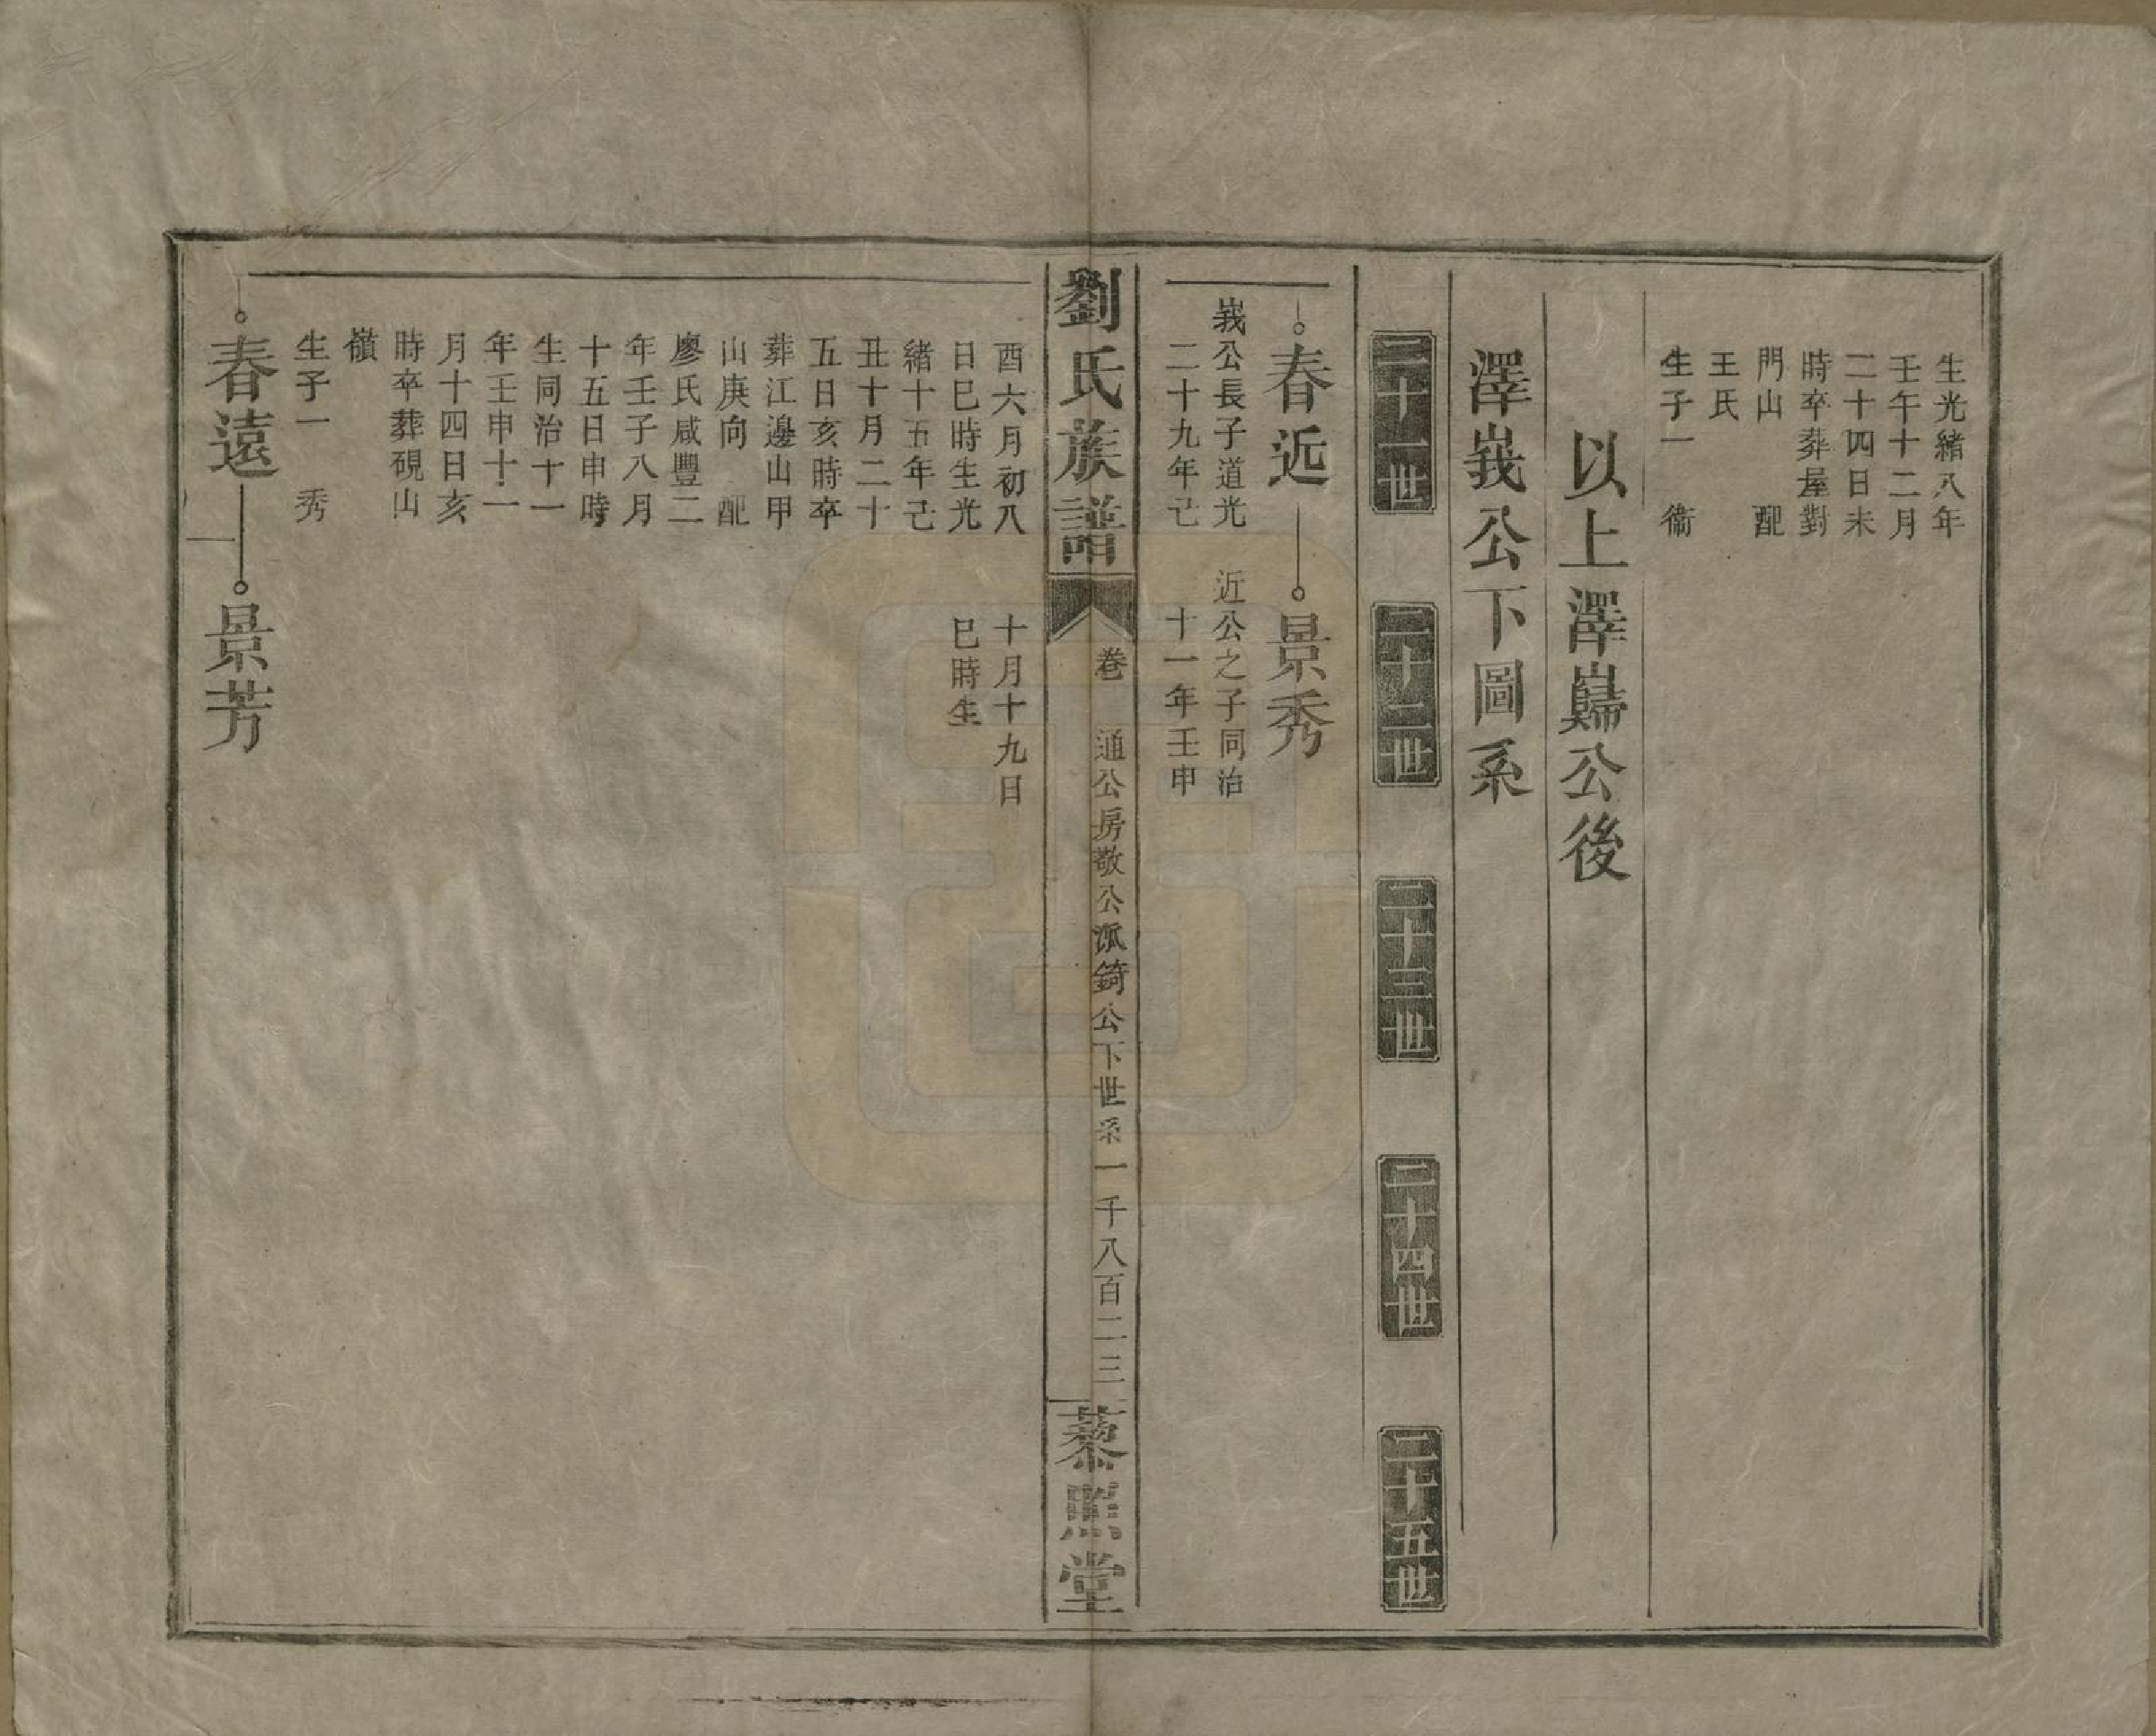 生光緒八年
壬午十二月
二十四日未
時卒葬屋對
門山 配
王氏
生子一 衞
以上澤巋公後
澤峩公下圖系
二十一世
二十二世
二十三世
二十四世
二十五世
春近
景秀
峩公長子道光
二十九年己
近公之子同治
十一年壬申
劉氏族譜
卷 通公房敬公派錡公下世系一千八百二三
藜照堂
酉六月初八
日巳時生光
緒十五年己
丑十月二十
五日亥時卒
葬江邊山甲
山庚向 配
廖氏咸豐二
年壬子八月
十五日申時
生同治十一
年壬申十一
月十四日亥
時卒葬硯山
嶺
生子一 秀
十月十九日
巳時生
春遠
景芳